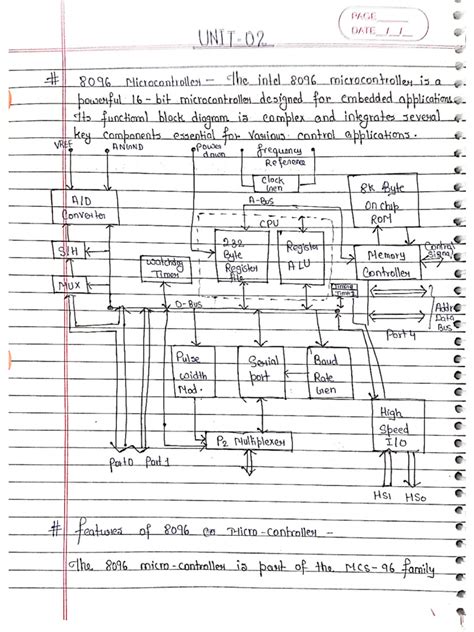 PAGE
DATE / /
UNIT-02
# 8096 Microcontroller - The intel 8096 microcontroller is a
powerful 16-bit microcontroller designed for embedded applications
Its functional block diagram is complex and integrates several
key components essential for various control applications.
VREF ANGND Power down frequency Reference
Clock Gen
A-Bus
8K Byte On chip ROM
A/D Converter
CPU
232 Byte Register file
Register ALU
Memory Controller
Control Signal
S/H
Watchdog Timer
MUX
D-Bus
Addr Data Bus
Port 4
Pulse width Mod.
Serial port
Baud Rate Gen
High Speed I/O
P2 Multiplexer
Port0 Port 1
HSI HSO
# features of 8096 Micro-controller -
The 8096 micro-controller is part of the MCS-96 family